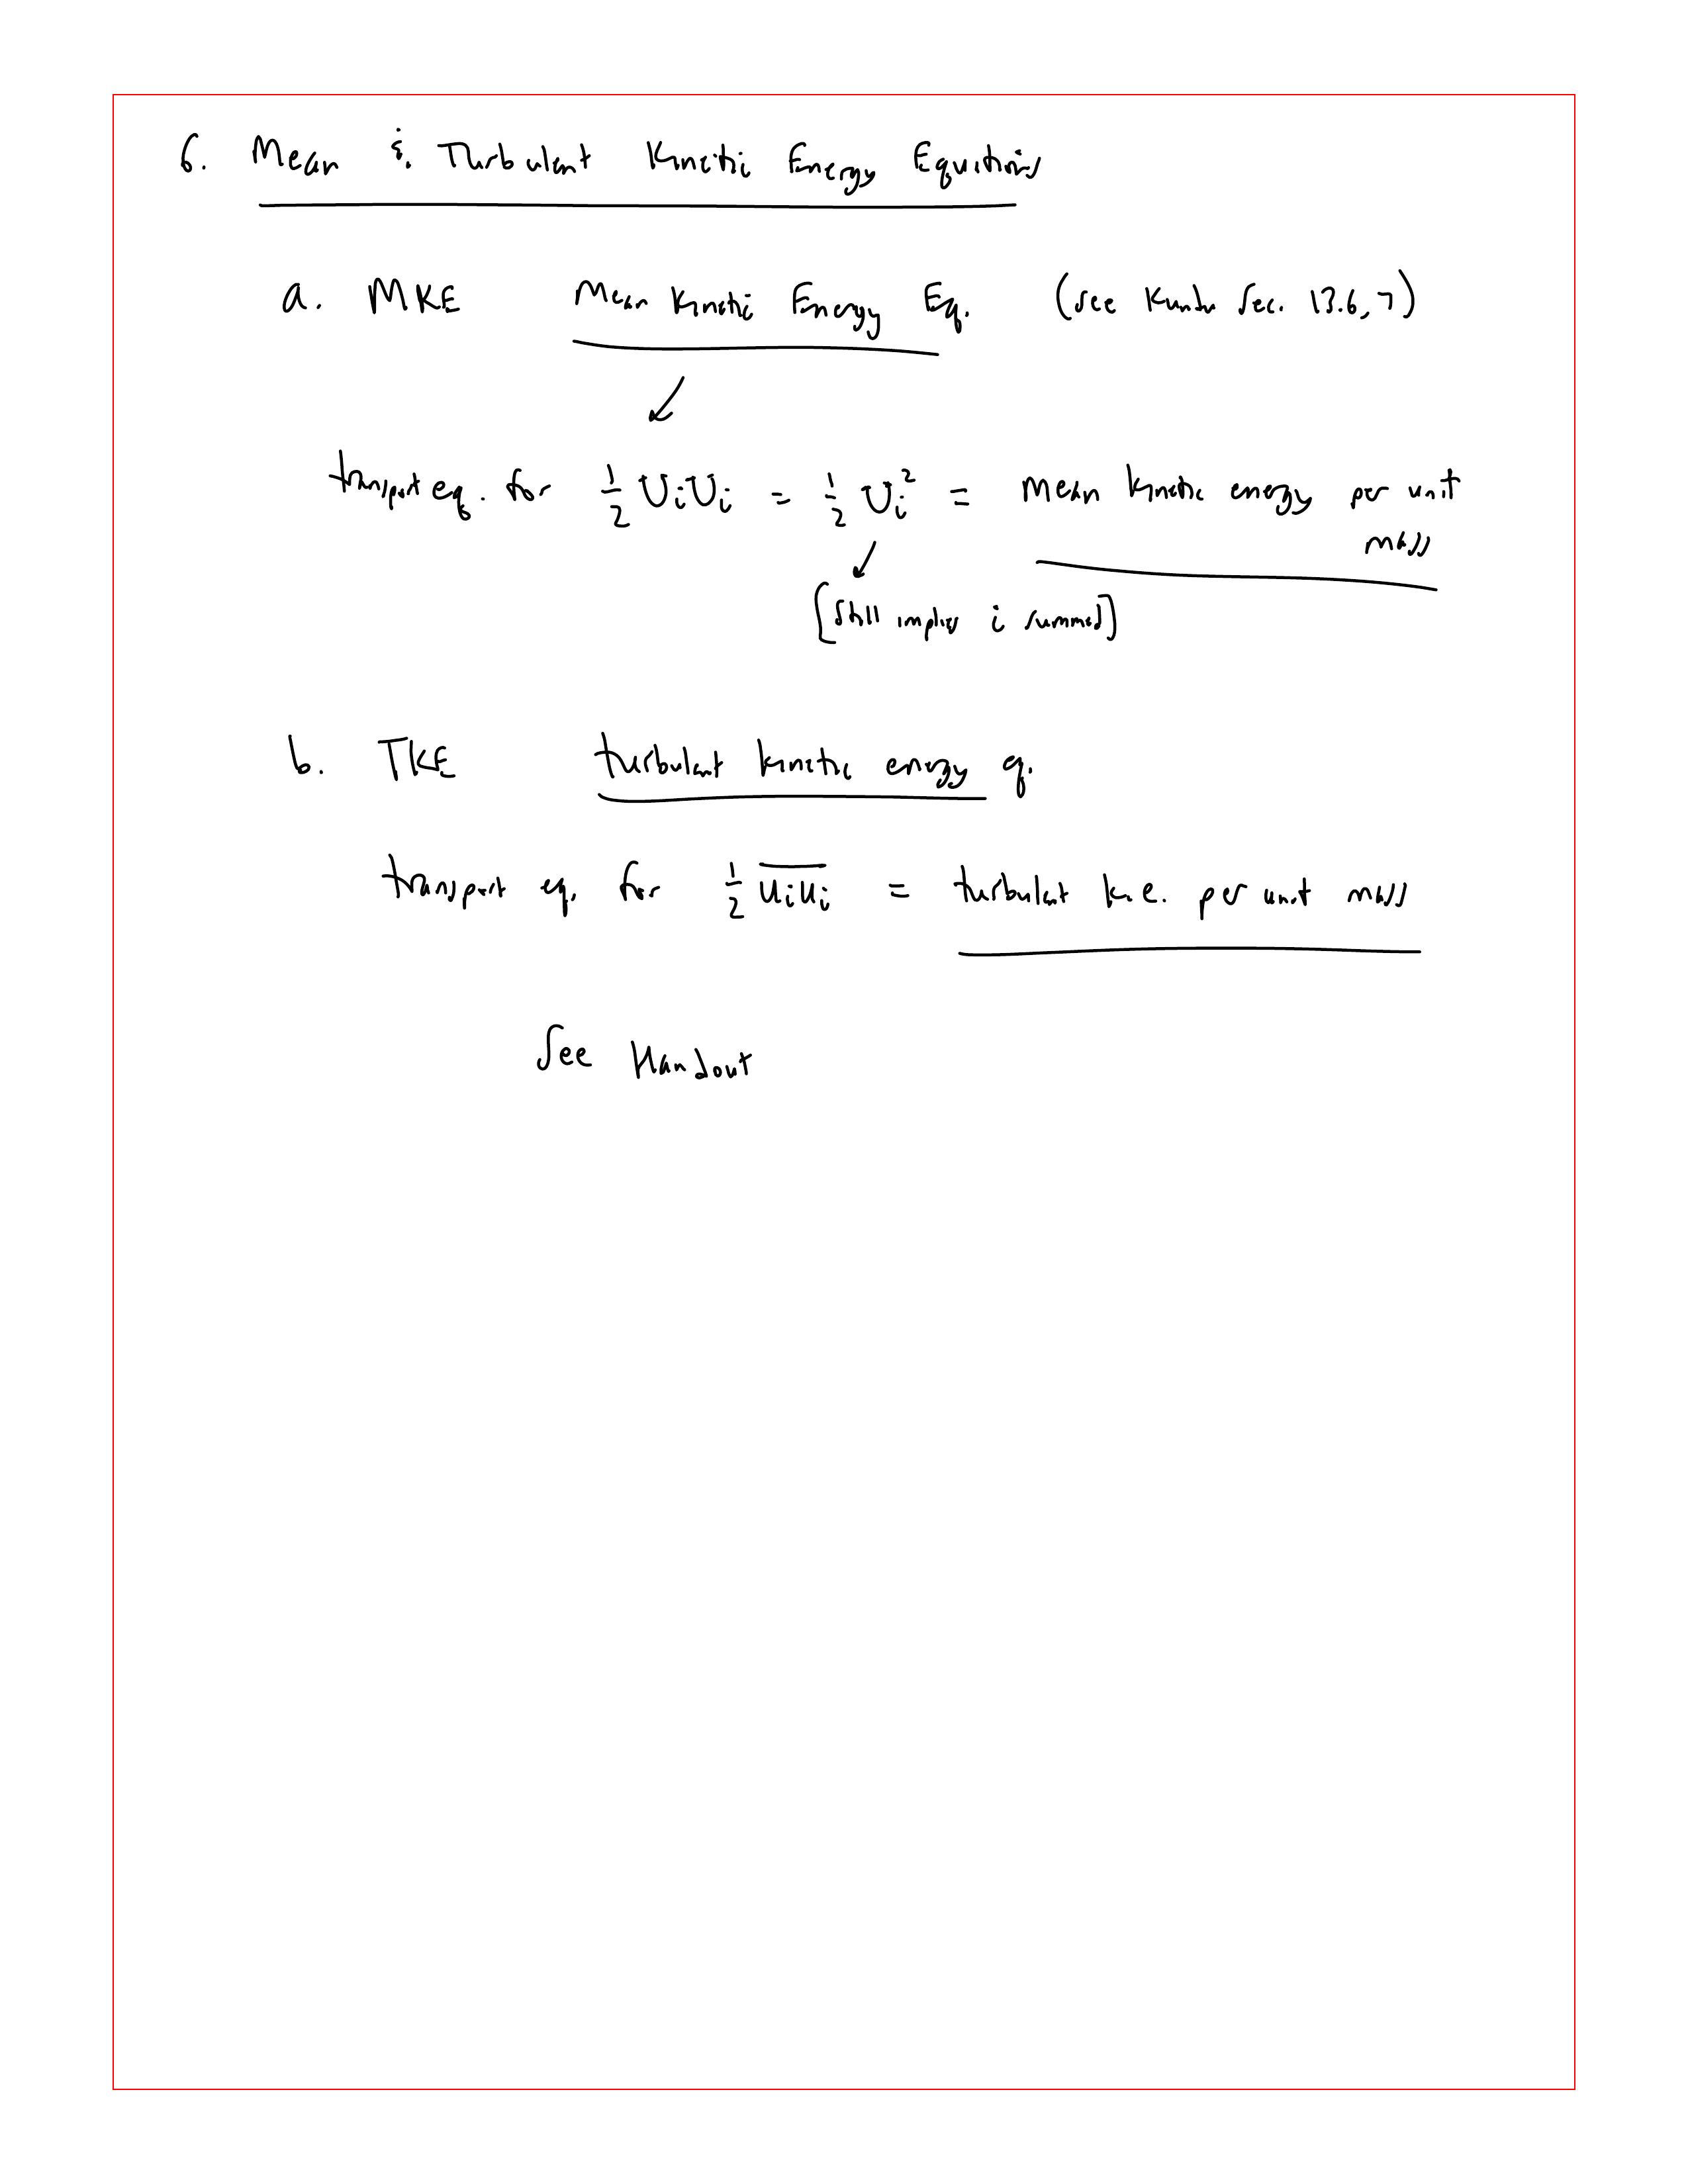 6. Mean & Turbulent Kinetic Energy Equations
a. MKE Mean Kinetic Energy Eq. (see Kundu Sec. 13.6, 7)
transport eq. for ½ UᵢUᵢ = ½ Uᵢ² = mean kinetic energy per unit
mass
[still implies i summed]
b. TKE turbulent kinetic energy eq.
transport eq. for ½ u̅ᵢu̅ᵢ = turbulent k.e. per unit mass
See Handout